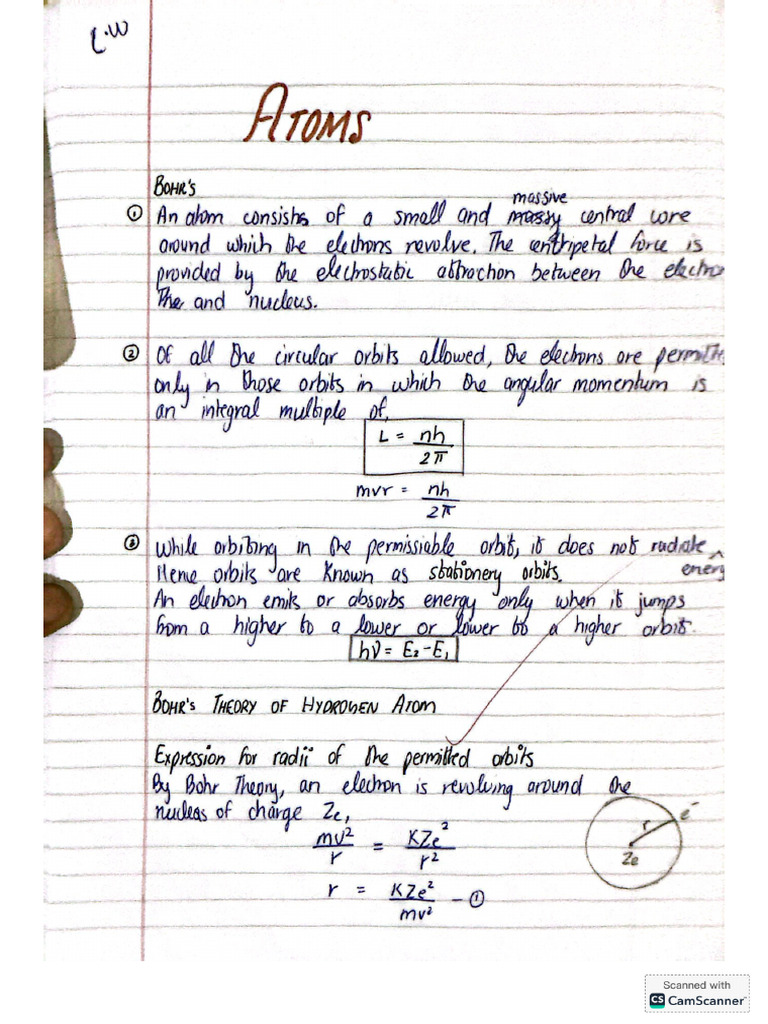 C.W
ATOMS
BOHR'S
massive
① An atom consists of a small and massy central core
around which the electrons revolve. The centripetal force is
provided by the electrostatic attraction between the electro
The and nucleus.
② Of all the circular orbits allowed, the electrons are permitte
only in those orbits in which the angular momentum is
an integral multiple of,
L = nh/2π
mvr = nh/2π
③ While orbiting in the permissiable orbit, it does not radiate ^
energy
Hence orbits are known as stationery orbits.
An electron emits or absorbs energy only when it jumps
from a higher to a lower or lower to a higher orbit.
hν = E₂ - E₁
BOHR'S THEORY OF HYDROGEN ATOM
Expression for radii of the permitted orbits
By Bohr Theory, an electron is revolving around the
nucleas of charge Ze,
mv²/r = KZe²/r²
r = KZe²/mv² - ①
e⁻
r
Ze
Scanned with
CS CamScanner